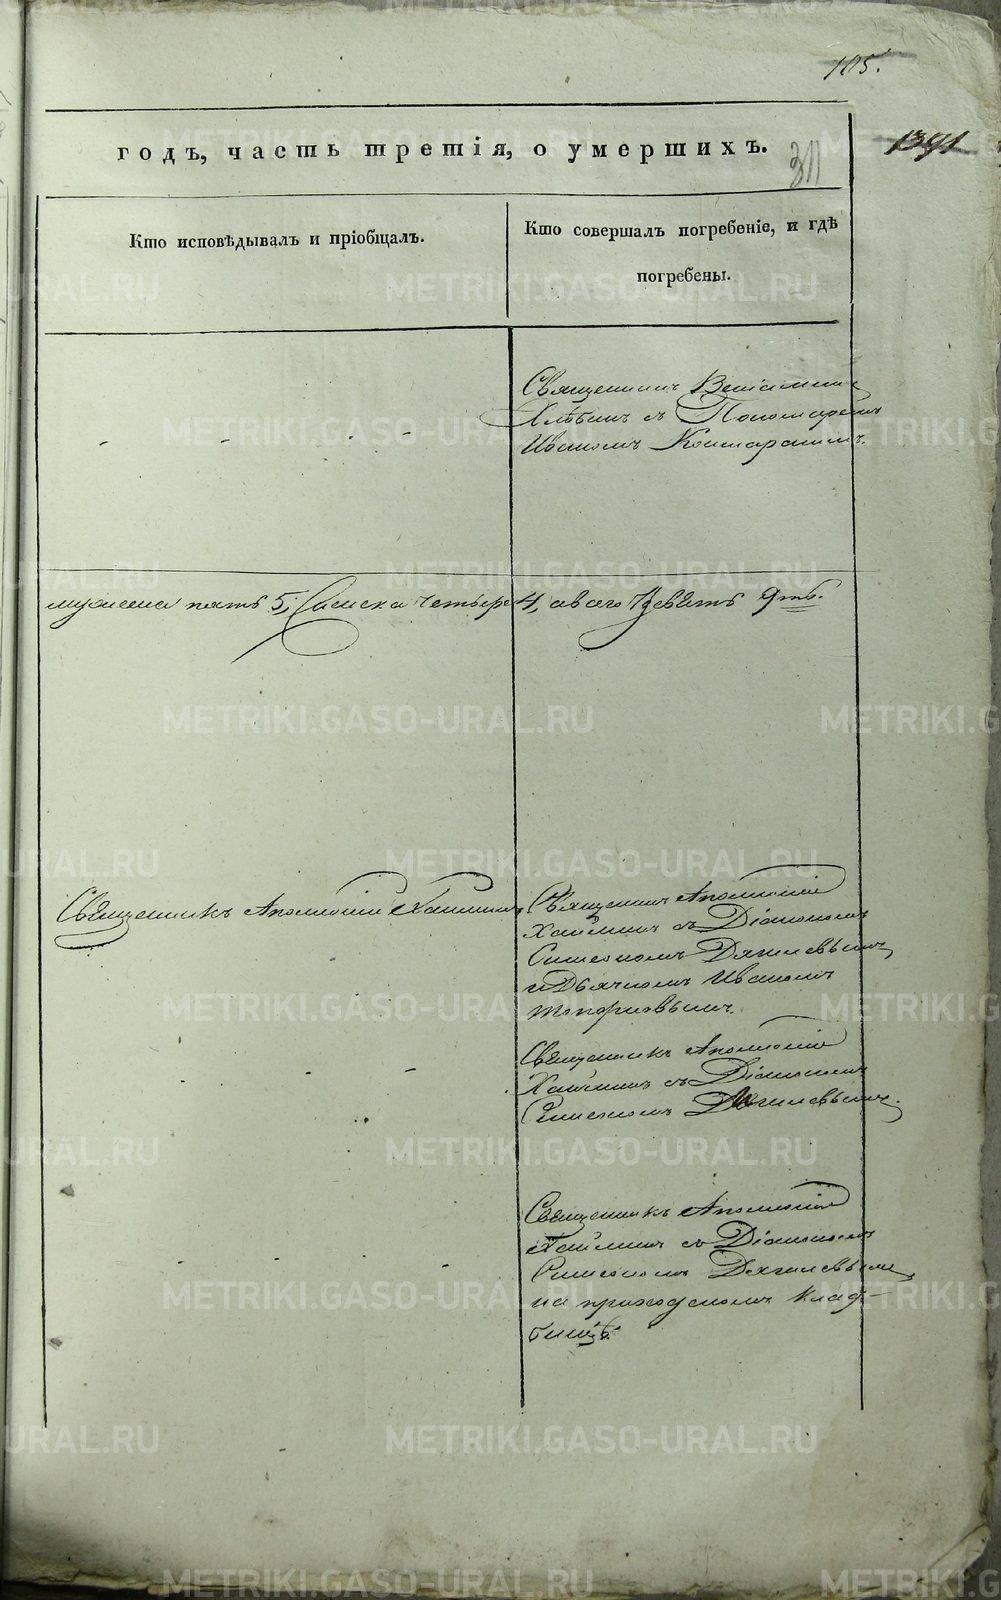 105.
1391
годъ, часть третія, о умершихъ.
311
Кто исповѣдывалъ и пріобщалъ.
Кто совершалъ погребеніе, и гдѣ
погребены.
Священникъ Веніаминъ
съ Пономаремъ
Иваномъ
мужеска пять 5, женска четыре 4, а всего девять 9ть.
Священникъ Аполлоній Хайминъ
Священникъ Аполлоній
Хайминъ съ Діакономъ
Симеономъ Дягилевымъ
и Дьячкомъ Иваномъ
Топорковымъ.
Священникъ Аполлоній
Хайминъ съ Діакономъ
Симеономъ Дягилевымъ.
Священникъ Аполлоній
Хайминъ съ Діакономъ
Симеономъ Дягилевымъ
на приходскомъ клад-
бищѣ.
METRIKI.GASO-URAL.RU